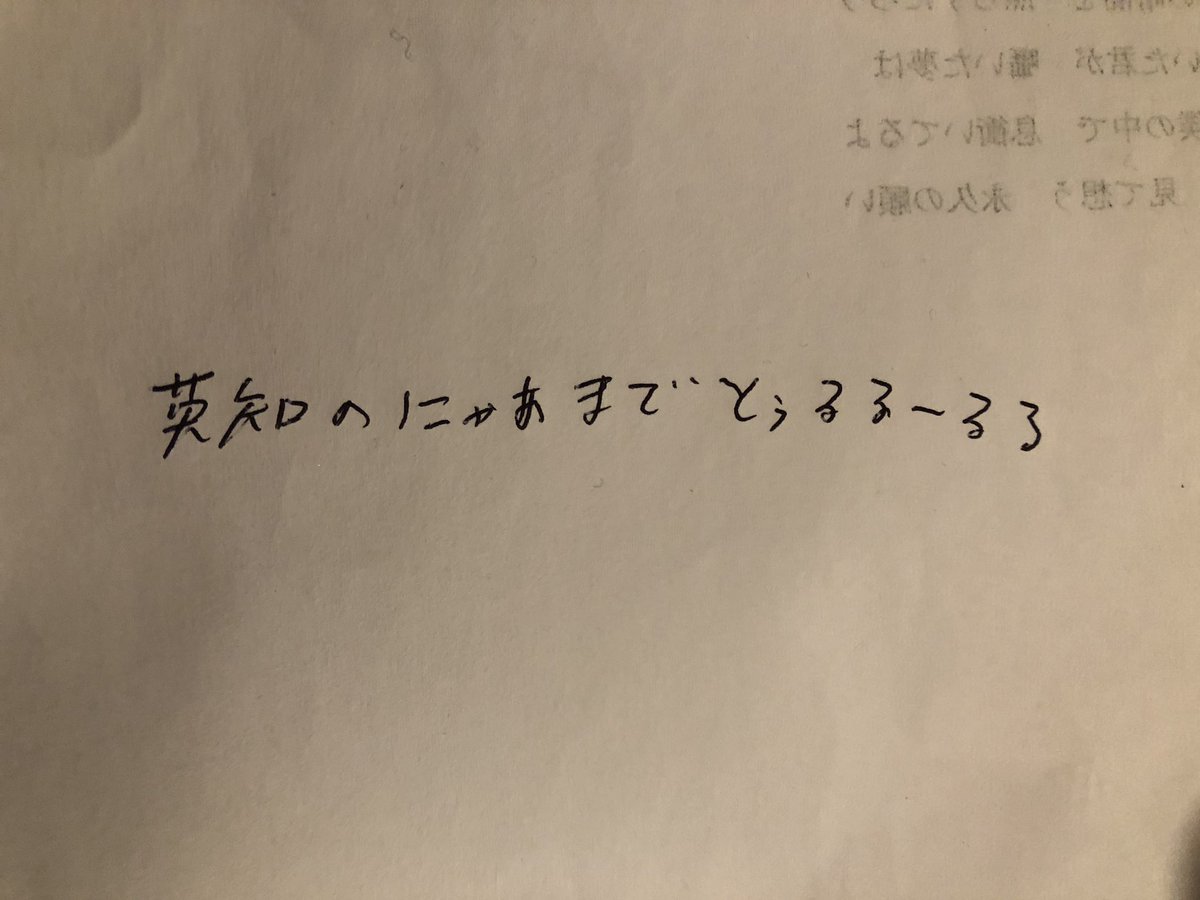 いた君が 囁いた夢は
僕の中で 息衝いてるよ
見て想う 永久の願い
英知のにゃあまでとぅるる〜るろ